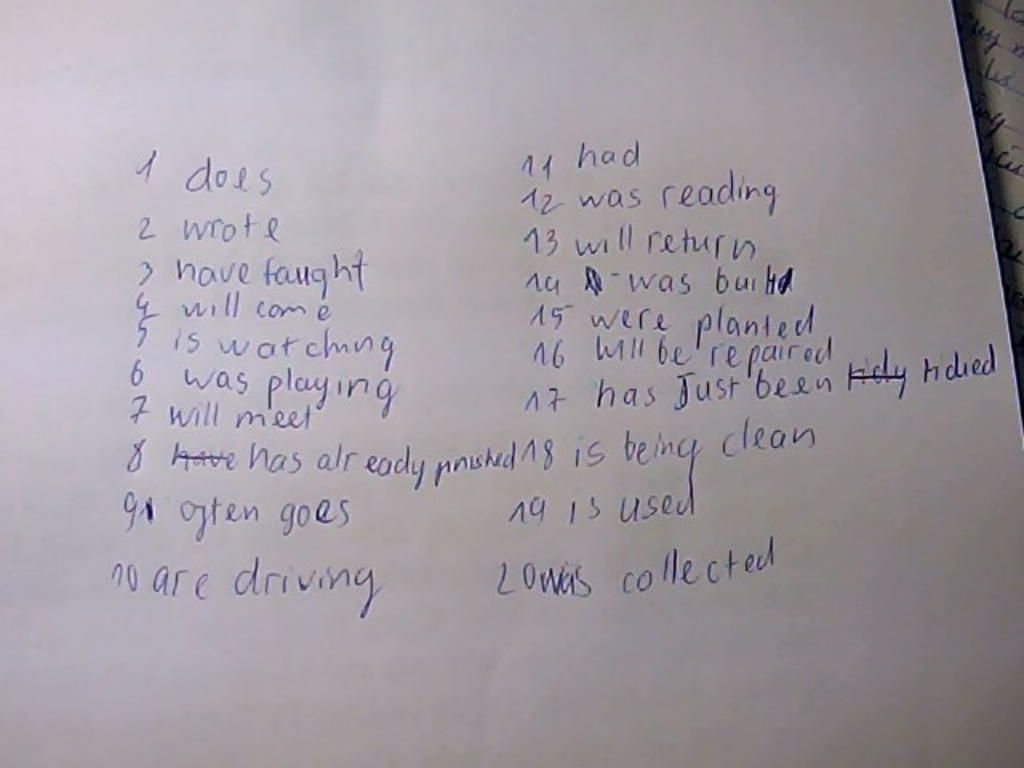 1 does
2 wrote
3 have taught
4 will come
5 is watching
6 was playing
7 will meet
8 have has already finished
9 often goes
10 are driving
11 had
12 was reading
13 will return
14 was built
15 were planted
16 Will be repaired
17 has Just been tidy tidied
18 is being clean
19 is used
20 was collected